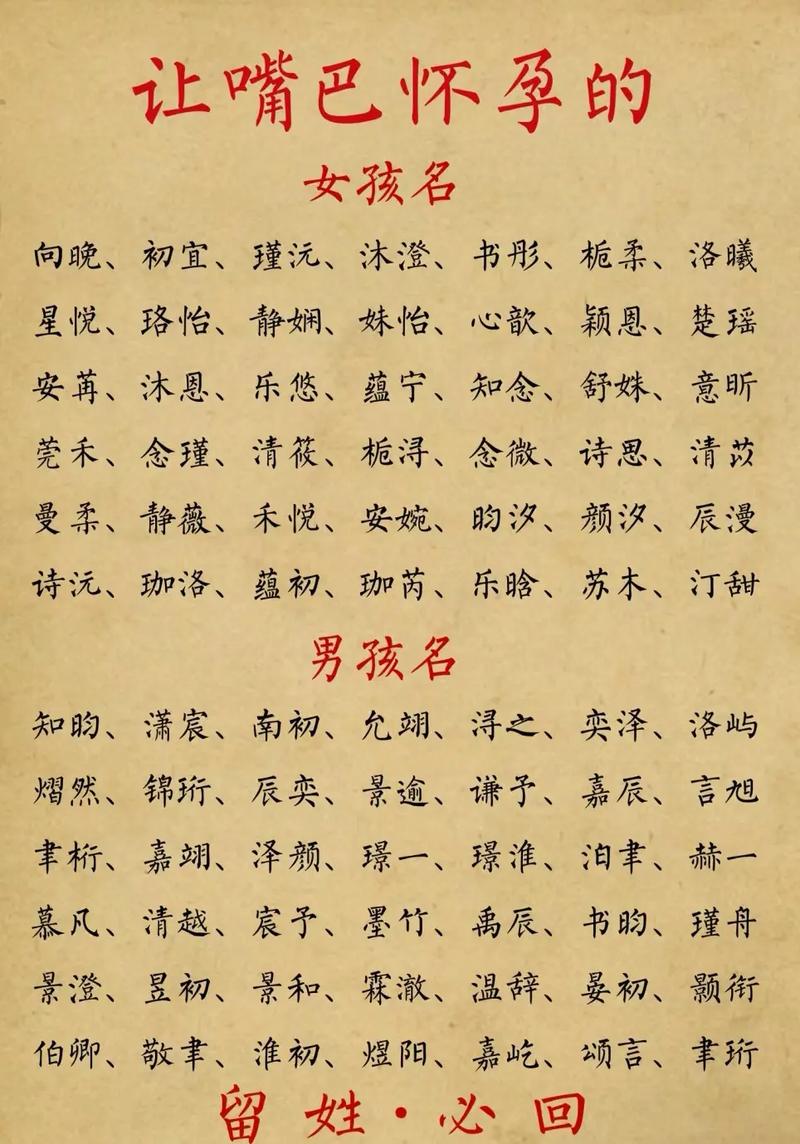 让嘴巴怀孕的
女孩名
向晚、初宜、瑾沅、沐澄、书彤、栀柔、洛曦
星悦、珞怡、静娴、妹怡、心歆、颖恩、楚瑶
安苒、沐恩、乐悠、蕴宁、知念、舒姝、意昕
莞禾、念瑾、清筱、栀浔、念微、诗思、清苡
曼柔、静薇、禾悦、安婉、昀汐、颜汐、辰漫
诗沅、珈洛、蕴初、珈芮、乐晗、苏木、汀甜
男孩名
知昀、潇宸、南初、允翊、浔之、奕泽、洛屿
熠然、锦珩、辰奕、景逾、谦予、嘉辰、言旭
聿桁、嘉翊、泽颜、璟一、璟淮、泊聿、赫一
慕凡、清越、宸予、墨竹、禹辰、书昀、瑾舟
景澄、昱初、景和、霖澈、温辞、晏初、颢衔
伯卿、敬聿、淮初、煜阳、嘉屹、颂言、聿珩
留姓·必回